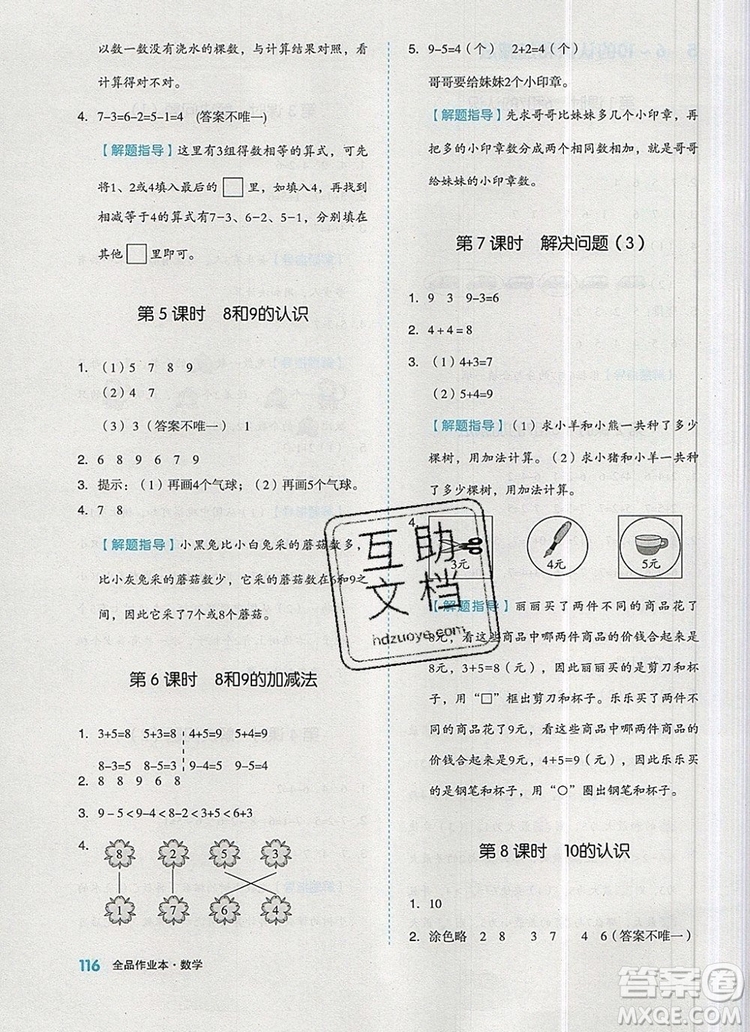 以数一数没有浇水的棵数，与计算结果对照，看
计算得对不对。
4. 7-3=6-2=5-1=4 (答案不唯一)
【解题指导】这里有3组得数相等的算式，可先
将1、2或4填入最后的□里，如填入4，再找到
相减等于4的算式有7-3、6-2、5-1，分别填在
其他□里即可。
第5课时 8和9的认识
1. （1）5 7 8 9
（2）4 7
（3）3（答案不唯一） 1
2. 6 8 9 6 7 9
3. 提示：（1）再画4个气球；（2）再画1个气球。
4. 7 8
【解题指导】小黑兔比小白兔采的蘑菇数多，
比小灰兔采的蘑菇数少，它采的蘑菇数在6和9之
间，因此它采了7个或8个蘑菇。
第6课时 8和9的加减法
1. 3+5=8 5+3=8 4+5=9 5+4=9
8-3=5 8-5=3 9-4=5 9-5=4
2. 8 8 9 6 8
3. 9-5<9-4<9-3<5+2<3+5<6+3
4.
8 2 5 3
1 7 4 6
116 全品作业本·数学
5. 9-5=4（个） 2+2=4（个）
哥哥要给妹妹2个小印章。
【解题指导】先求哥哥比妹妹多几个小印章，再
把多的小印章数分成两个相同数相加，就是哥哥
给妹妹的小印章数。
第7课时 解决问题（3）
1. 9 3 9-3=6
2. 4+4=8
3. （1）4+3=7
（2）5+4=9
【解题指导】（1）求小羊和小熊一共种了多少
棵树，用加法计算。（2）求小猪和小羊一共种
了多少棵树，用加法计算。
4.
3元 4元 5元
【解题指导】丽丽买了两件不同的商品花了
8元，看这些商品中哪两种商品的价钱合起来是
8元，3+5=8（元），所以丽丽买的是剪刀和杯
子，用“□”框出剪刀和杯子。乐乐买了两件不
同的商品花了9元，看这些商品中哪两种商品的
价钱合起来是9元，4+5=9（元），所以乐乐买
的是钢笔和杯子，用“○”圈出钢笔和杯子。
第8课时 10的认识
1. 10
2. 涂色略 2 8 3 7 4 6（答案不唯一）
互助
文档
hdzuoye.com
答案圈
MXQE.COM